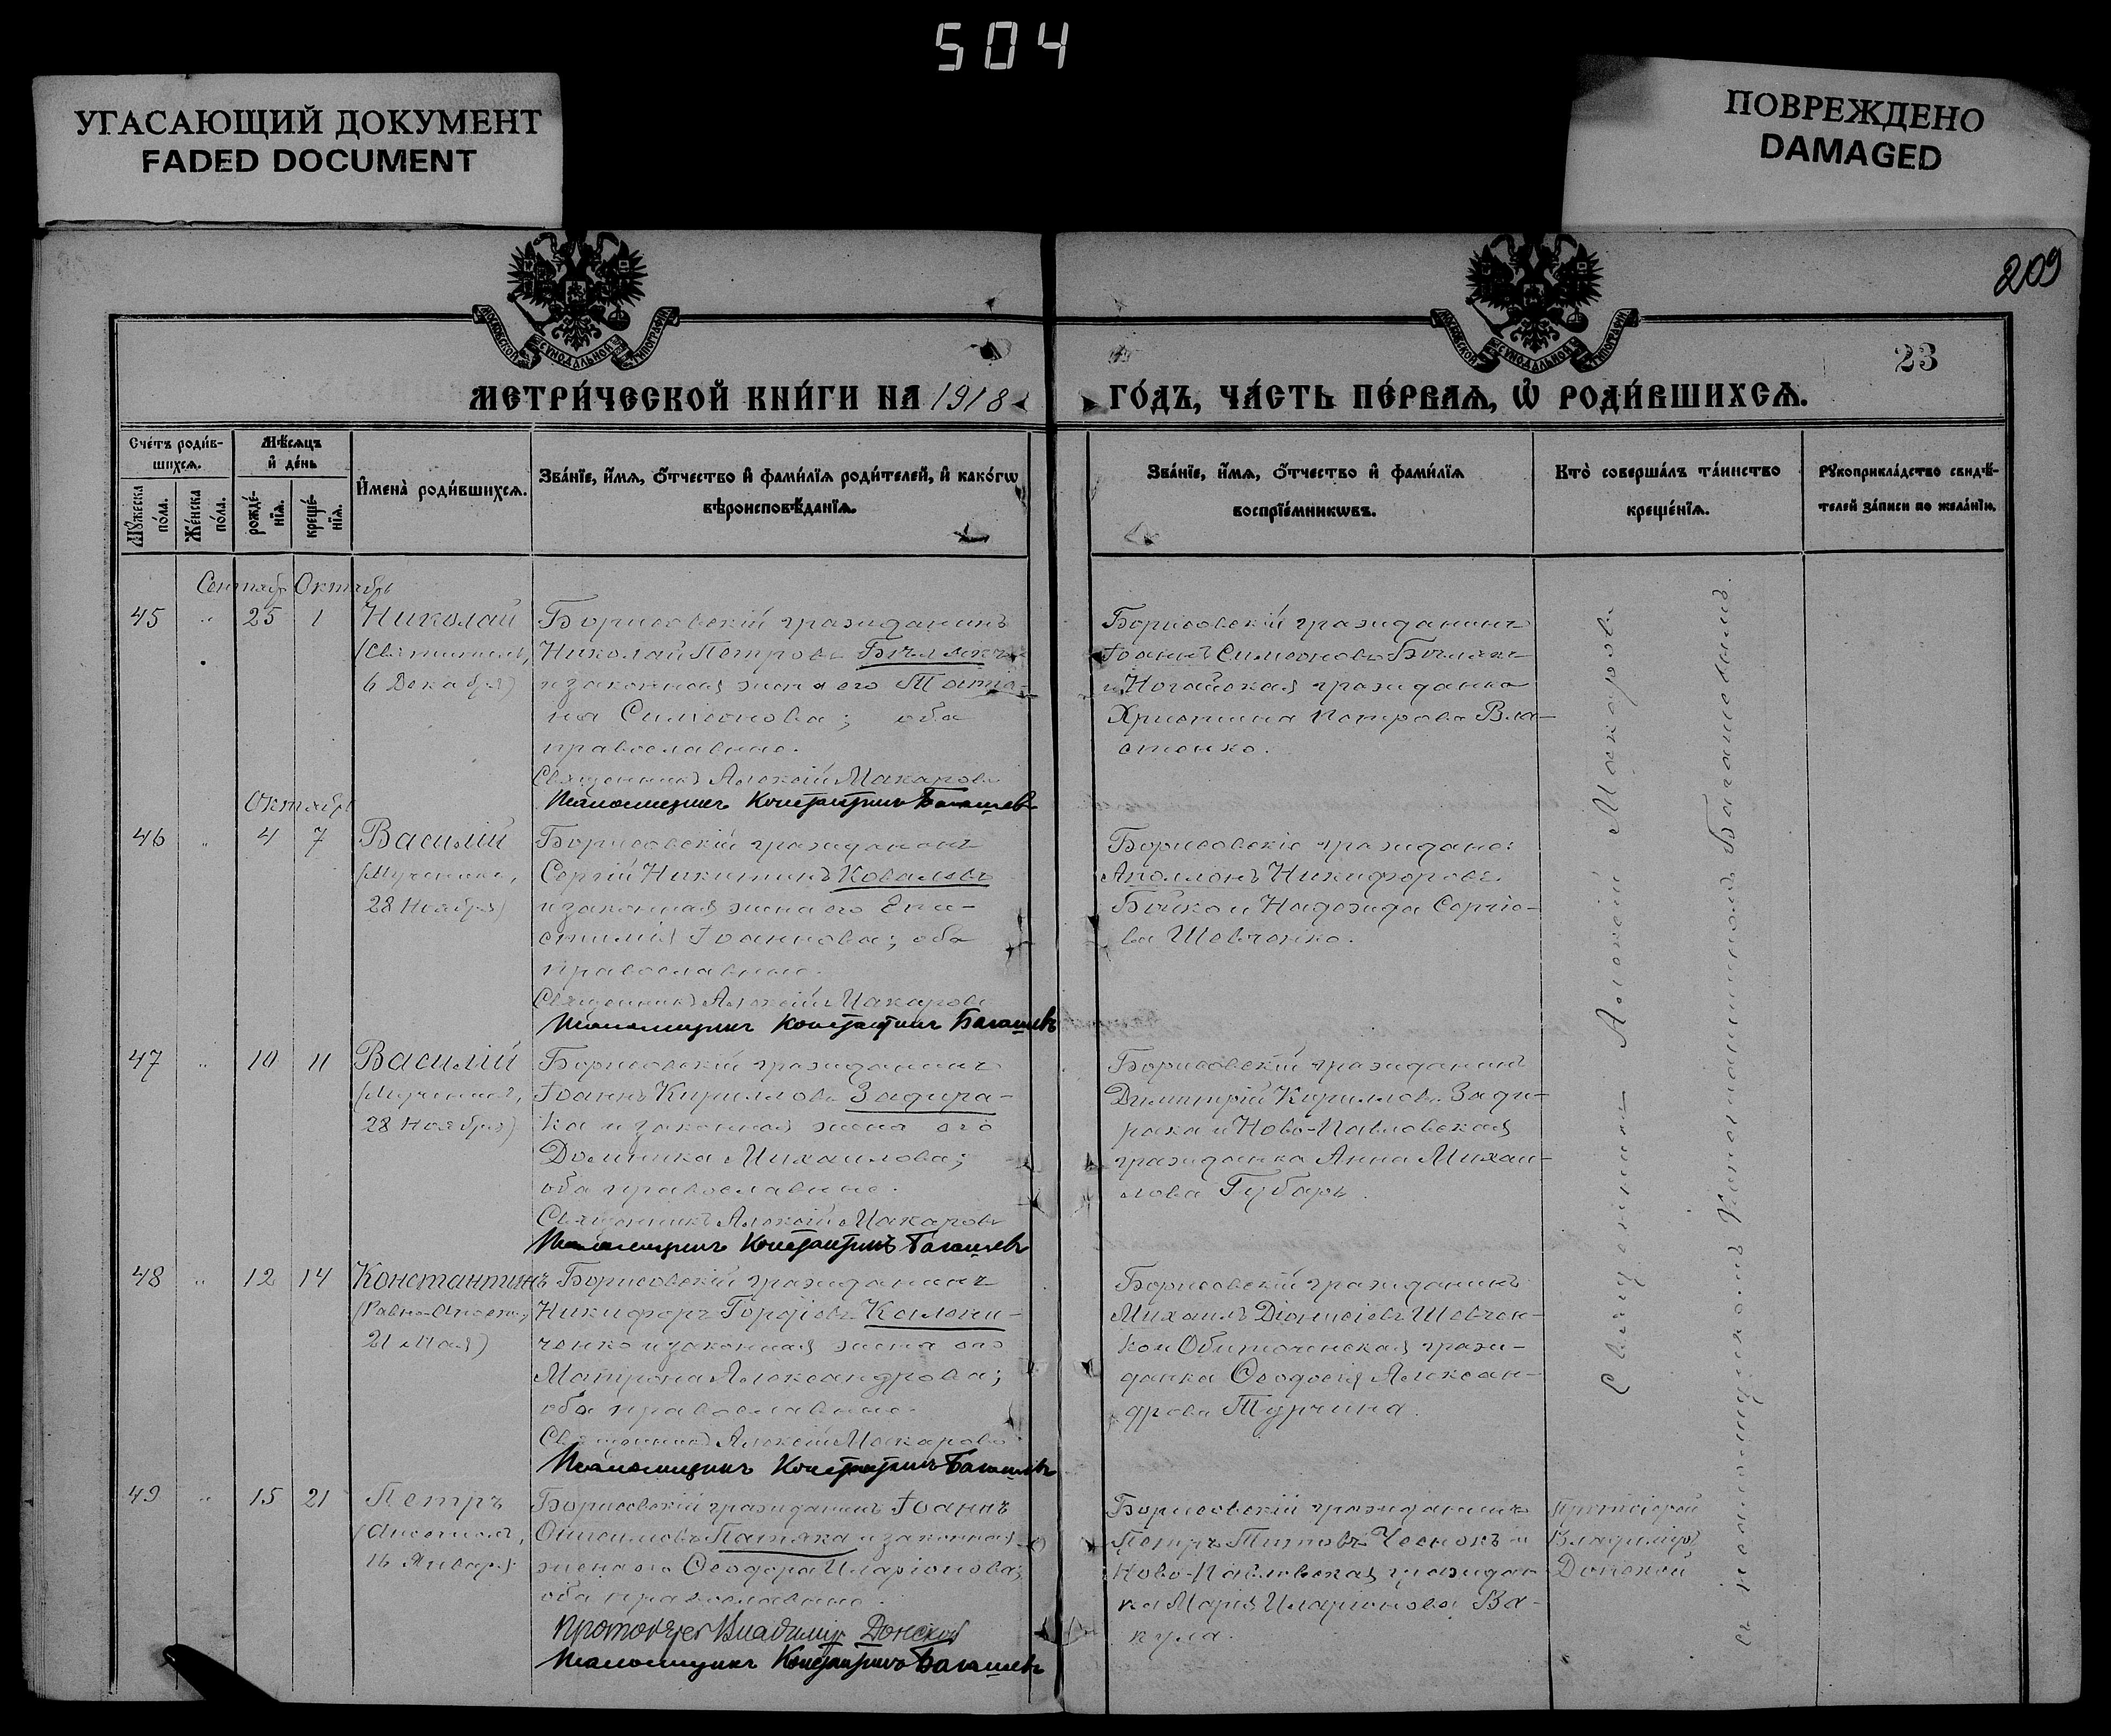 504
УГАСАЮЩИЙ ДОКУМЕНТ
FADED DOCUMENT
ПОВРЕЖДЕНО
DAMAGED
209
МОСКОВСКОЙ СѴНОДАЛЬНОЙ ТИПОГРАФІИ
МОСКОВСКОЙ СѴНОДАЛЬНОЙ ТИПОГРАФІИ
23
МЕТРИ́ЧЕСКОЙ КНИ́ГИ НА 1918
ГО́ДЪ, ЧА́СТЬ ПЕ́РВАѦ, Ѡ҆ РОДИ́ВШИХСѦ.
Сче́тъ роди́в-
шихсѧ.
Мѣ́сѧцъ
и҆ де́нь
Мꙋ́жеска
по́ла.
Же́нска
по́ла.
рожде́-
нїѧ.
креще́-
нїѧ.
И҆мена̀ роди́вшихсѧ.
Зва́нїе, и҆́мѧ, ѻ҆́тчество и҆ фами́лїѧ роди́телей, и҆ како́гѡ
вѣроисповѣ́данїѧ.
Зва́нїе, и҆́мѧ, ѻ҆́тчество и҆ фами́лїѧ
воспрїе́мникѡвъ.
Кто̀ соверша́лъ та́инство
креще́нїѧ.
Рꙋкоприкла́дство свидѣ́-
телей за́писи по жела́нїю.
Сентябр Октябрь
45 " 25 1 Николай
(Святитель,
6 Декабря)
Борисовскій гражданинъ
Николай Петровъ
и законная жена его Татiа-
на Симеонова; оба
православные.
Священникъ Алексій Макаровъ
Псаломщикъ Константинъ Багашевъ
Борисовскій гражданинъ
Іоаннъ Симеоновъ
и Ногайская гражданка
Христина Петрова Вла-
сенко.
Октябрь
46 " 4 7 Василій
(Мученикъ,
28 Ноября)
Борисовскій гражданинъ
Сергій Никитинъ Ковалевъ
и законная жена его Епи-
стимія Іоаннова; оба
православные.
Священникъ Алексій Макаровъ
Псаломщикъ Константинъ Багашевъ
Борисовскіе граждане:
Аполлонъ Никифоровъ
Бойко и Надежда Сергіе-
ва Шевченко.
47 " 10 11 Василій
(Мученикъ,
28 Ноября)
Борисовскій гражданинъ
Іоаннъ Кирилловъ Задира-
ка и законная жена его
Домника Михаилова;
оба православные.
Священникъ Алексій Макаровъ
Псаломщикъ Константинъ Багашевъ
Борисовскій гражданинъ
Димитрій Кирилловъ Зади-
рака и Ново-Павловская
гражданка Анна Михаи-
лова Губарь.
48 " 12 14 Константинъ
(Равно-Апост.,
21 Мая)
Борисовскій гражданинъ
Никифоръ Гордіевъ Калени-
ченко и законная жена его
Матрона Александрова;
оба православные.
Священникъ Алексій Макаровъ
Псаломщикъ Константинъ Багашевъ
Борисовскій гражданинъ
Михаилъ Діонисіевъ Шевчен-
ко и Обиточенская граж-
данка Ѳеодосія Алексан-
дрова Турчина.
49 " 15 21 Петръ
(Апостолъ,
16 Января)
Борисовскій гражданинъ Іоаннъ
Онисимовъ Патяка и законная
жена его Ѳеодора Иларіонова;
оба православные.
Протоіерей Владимиръ Донской
Псаломщикъ Константинъ Багашевъ
Борисовскій гражданинъ
Петръ Титовъ Чеснокъ и
Ново-Павловская граждан-
ка Марія Иларіонова Ва-
кула.
Протоіерей
Владиміръ
Донской
Священникъ Алексій Макаровъ
съ псаломщикомъ Константиномъ Багашевымъ.